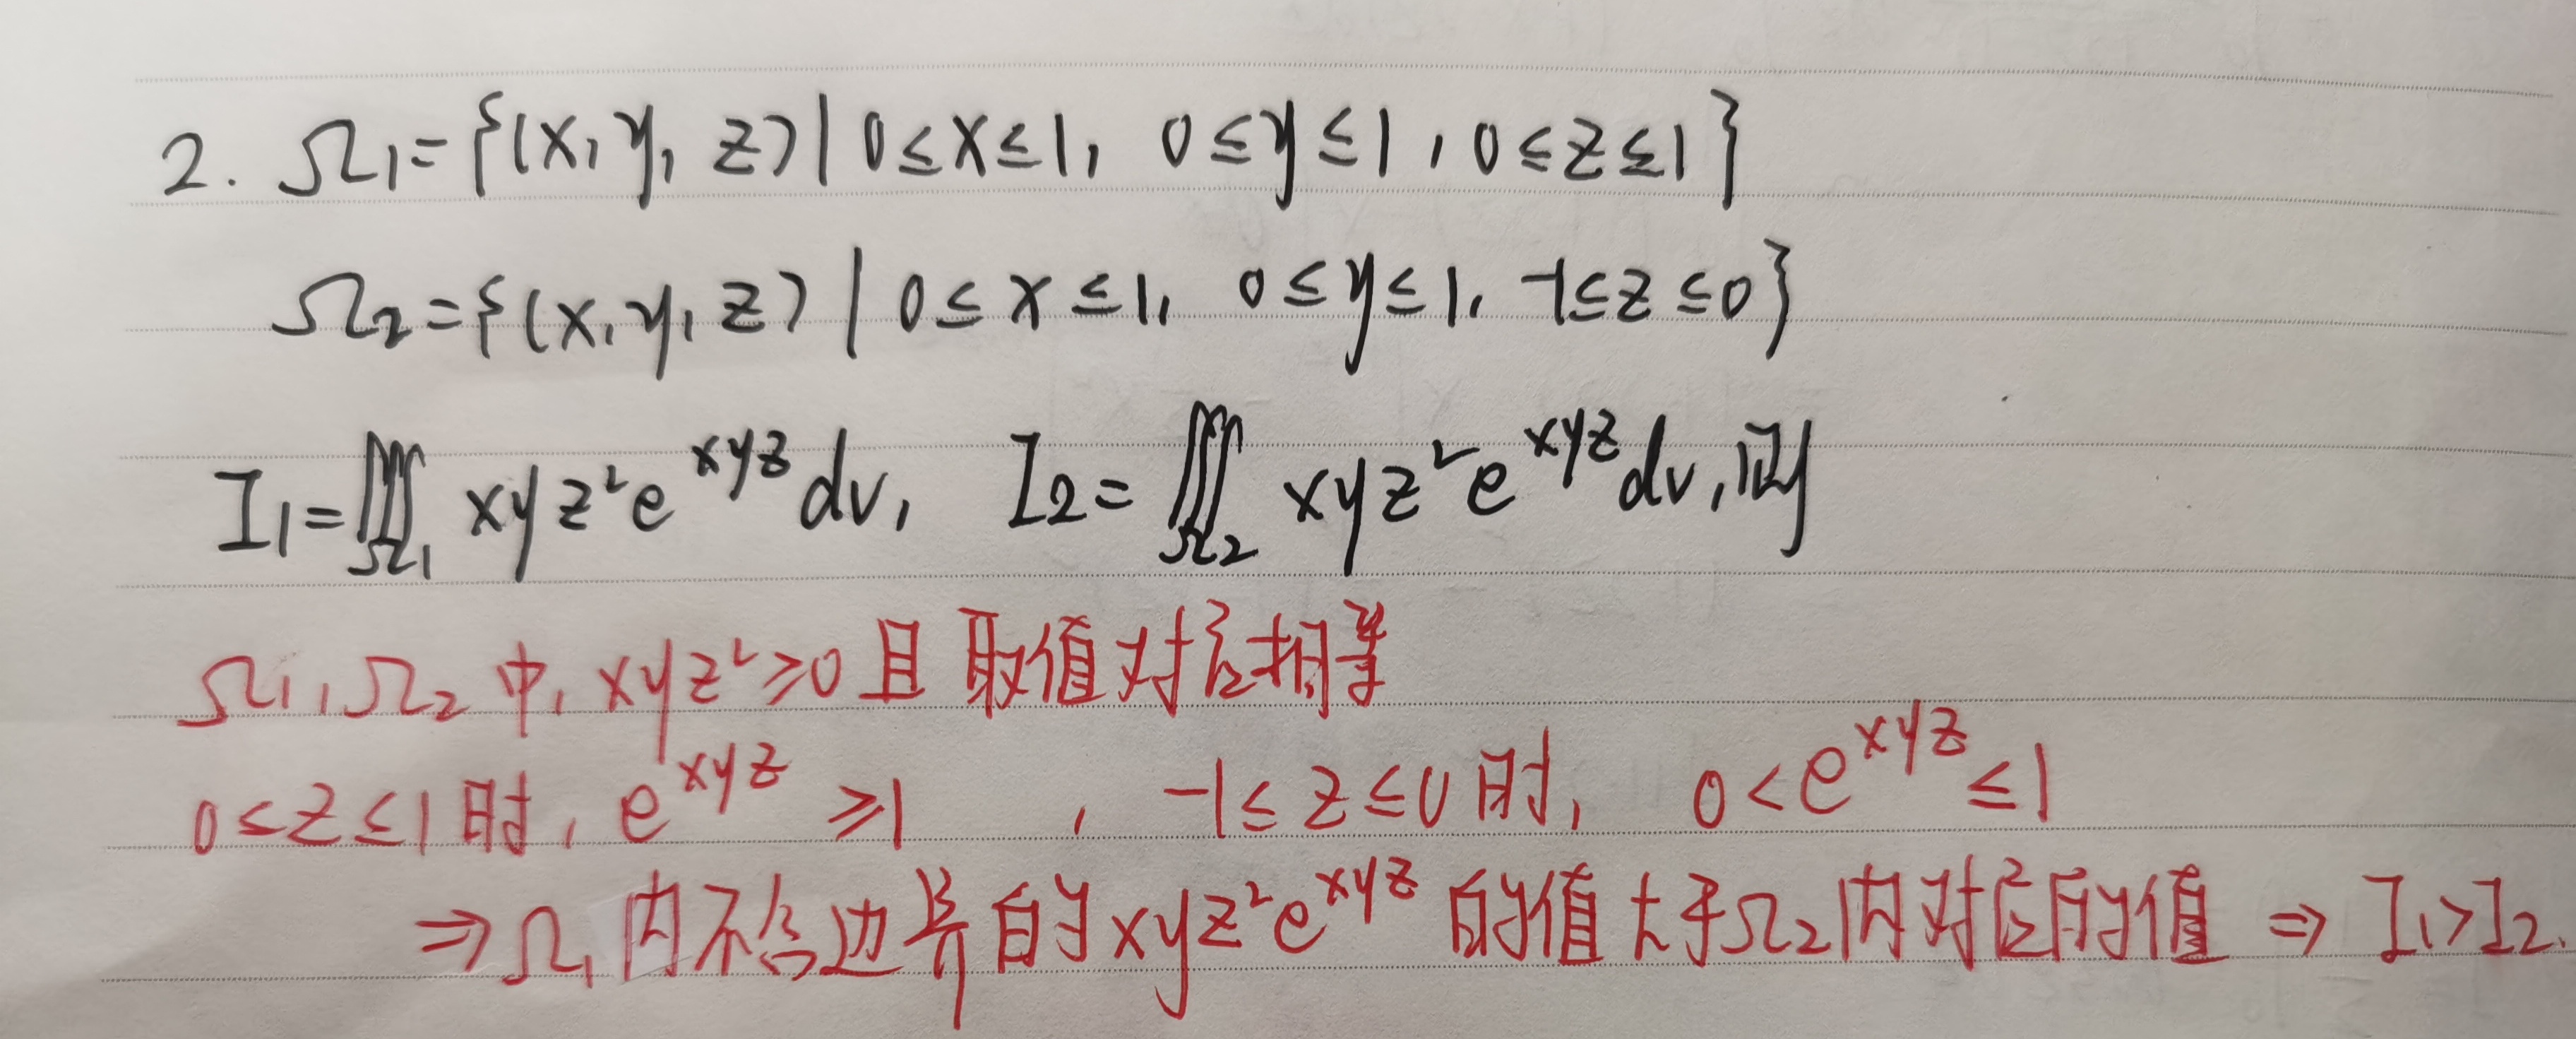 2. Ω₁={(x, y, z) | 0≤x≤1, 0≤y≤1, 0≤z≤1}
Ω₂={(x, y, z) | 0≤x≤1, 0≤y≤1, -1≤z≤0}
I₁=∭_Ω₁ xyz²e^{xyz}dv, I₂=∭_Ω₂ xyz²e^{xyz}dv, 则
Ω₁,Ω₂中, xyz²≥0且取值对应相等
0≤z≤1时, e^{xyz}≥1, -1≤z≤0时, 0<e^{xyz}≤1
⇒Ω₁内不含边界的xyz²e^{xyz}的值大于Ω₂内对应的值 ⇒ I₁>I₂.